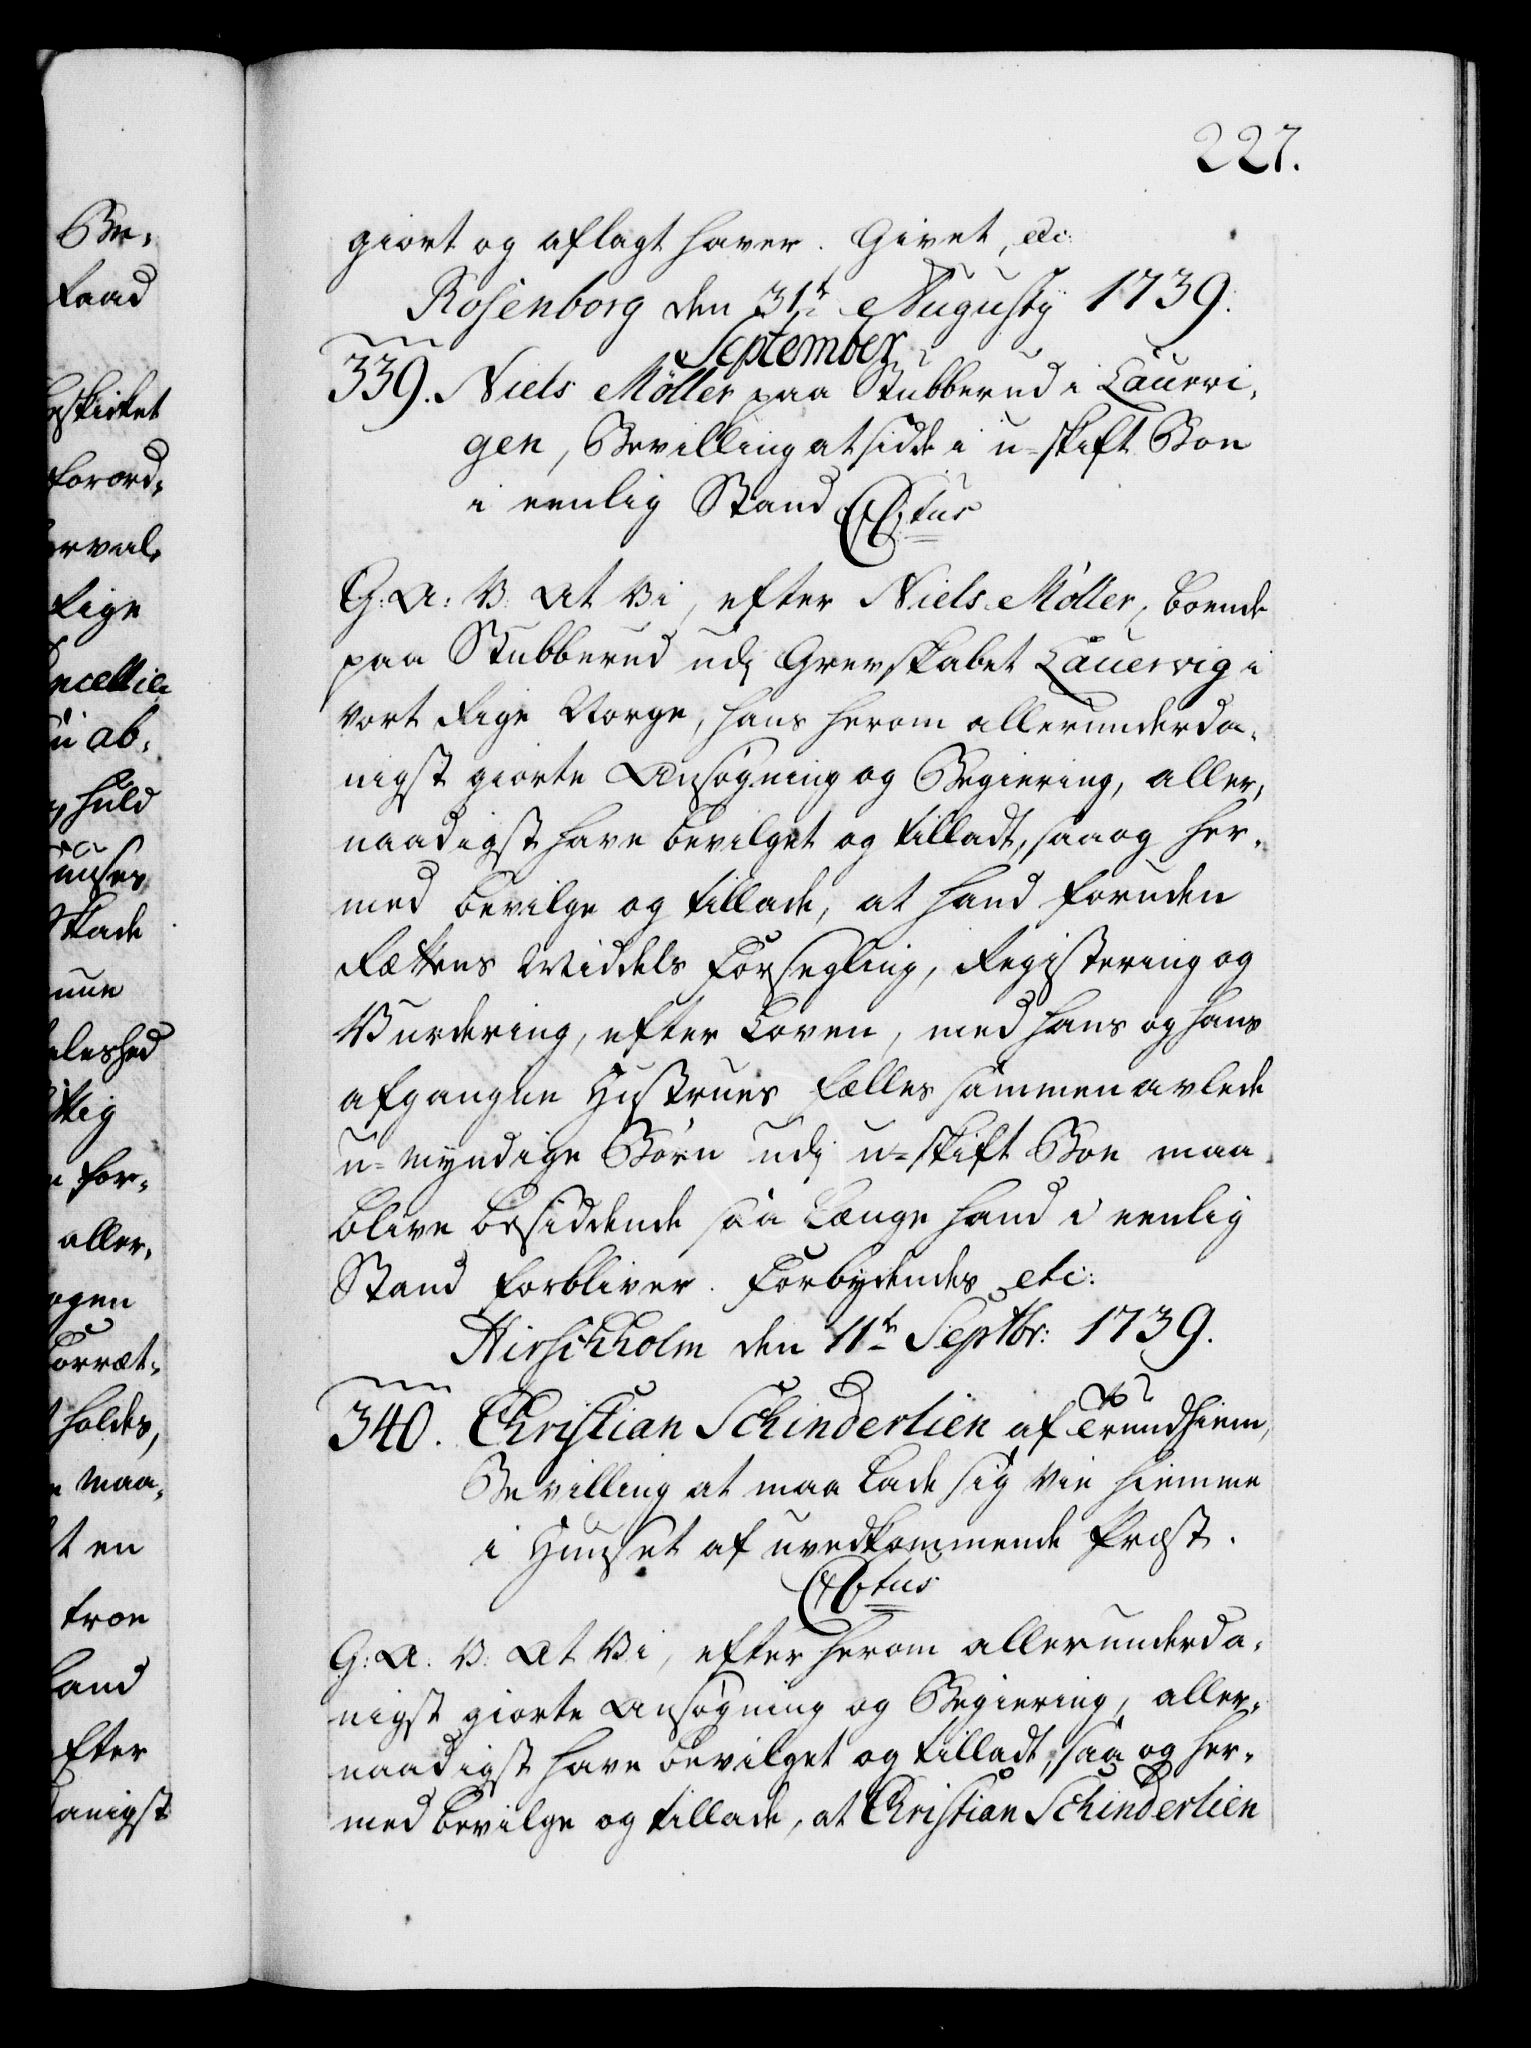 227.
giort og aflagt haver. Givet, etc:
Rosenborg den 31te Augusty 1739.
September
339. Niels Möller paa Stubberud i Lauervi-
gen, Bevilling at sidde i u-skift Boe
i eenlig Stand CC5tus
G: A: V: At Vi, efter Niels Möller, boende
paa Stubberud udj Grevskabet Lauervig i
vort Rige Norge, hans herom allerunderda-
nigst giorte Ansøgning og Begiering, aller-
naadigst have bevilget og tilladt, saa og her-
med bevilge og tillade, at hand foruden
Rættens Middels Forsegling, Registering og
Vurdering, efter Loven, med hans og hans
afgangne Hustrues fælles sammenavlede
u-myndige Børn udj u-skift Boe maa
blive besiddende saa længe hand i eenlig
Stand forbliver. Forbydendes etc:
Hirschholm den 11te Septbr: 1739.
340. Christian Schinderlien af Trundhiem,
Bevilling at maa lade sig vie hiemme
i Huuset af uvedkommende Præst.
G: A: V: At Vi, efter herom allerunderda-
nigst giorte Ansøgning og Begiering, aller-
naadigst have bevilget og tilladt, saa og her-
med bevilge og tillade, at Christian Schinderlien